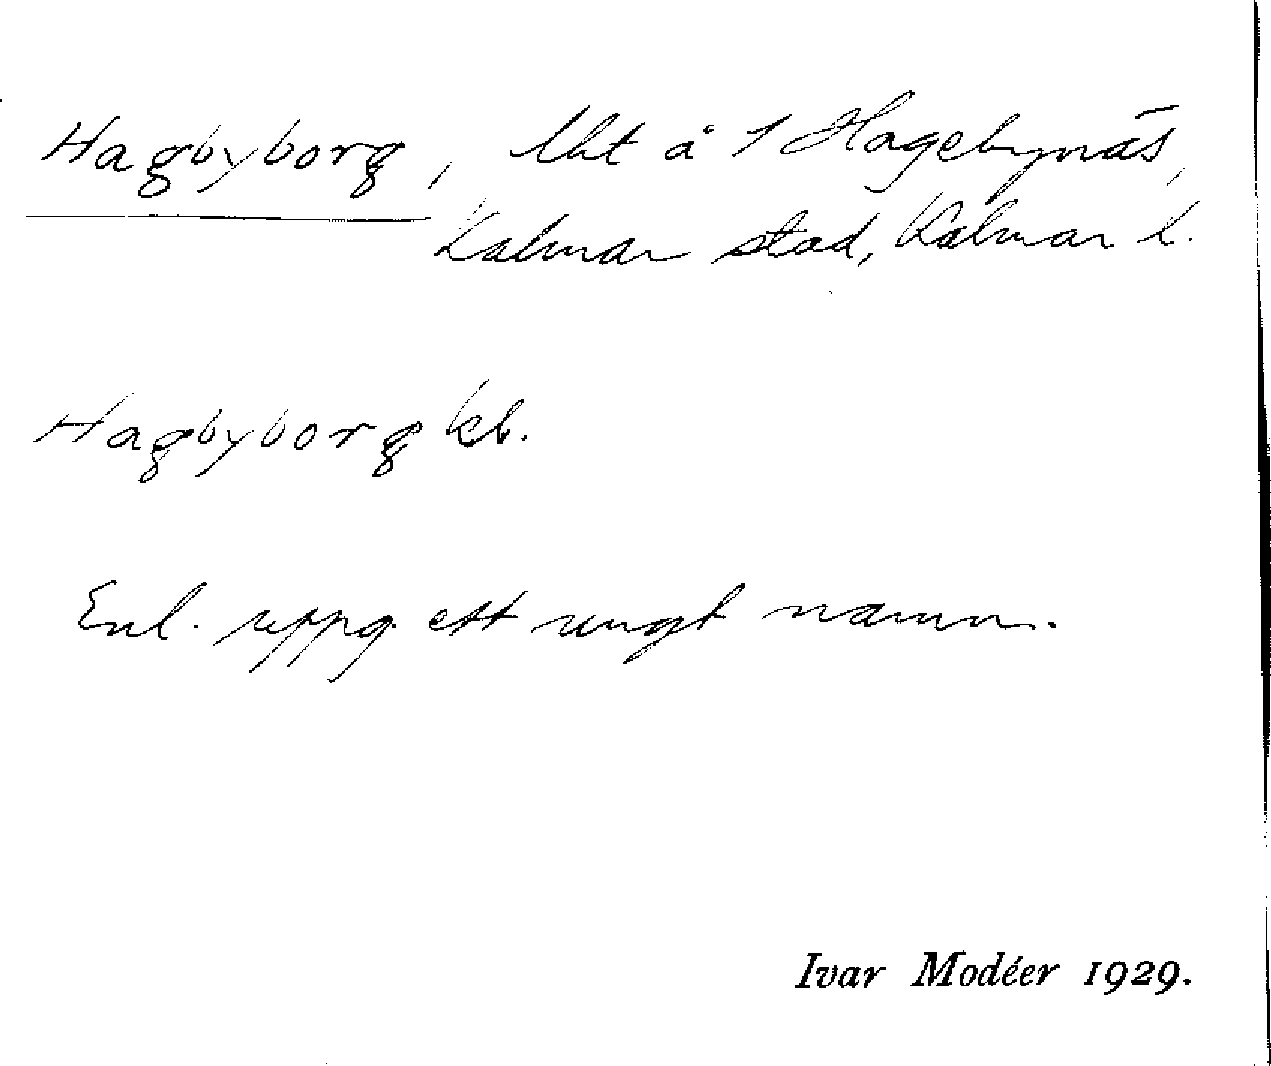 Hagbyborg, lht å 1 Hagebynäs,
Kalmar stad, Kalmar l.
Hagbyborg kb.
Enl. uppg. ett ungt namn.
Ivar Modéer 1929.